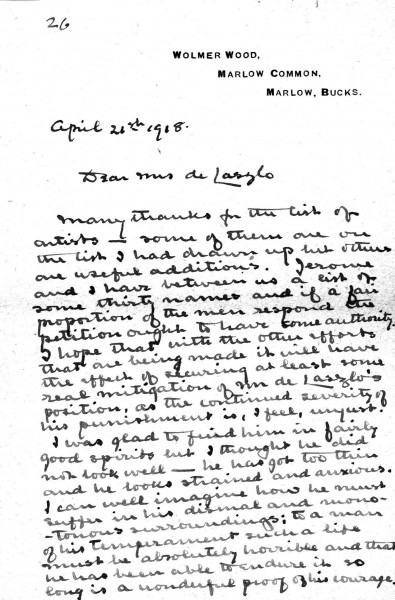 26
WOLMER WOOD,
MARLOW COMMON,
MARLOW, BUCKS.
April 21st 1918.
Dear Mrs de Laszlo
Many thanks for the list of
artists — some of them are on
the list I had drawn up but others
are useful additions. Jerome
and I have between us a list of
some thirty names and if a fair
proportion of the men respond the
petition ought to have some authority.
I hope that with the other efforts
that are being made it will have
the effect of securing at least some
real mitigation of Mr de Laszlo's
position, as the continued severity of
his punishment is, I feel, unjust.
I was glad to find him in fairly
good spirits but I thought he did
not look well — he has got too thin
and he looks strained and anxious.
I can well imagine how he must
suffer in his dismal and mono-
-tonous surroundings; to a man
of his temperament such a life
must be absolutely horrible and that
he has been able to endure it so
long is a wonderful proof of his courage.